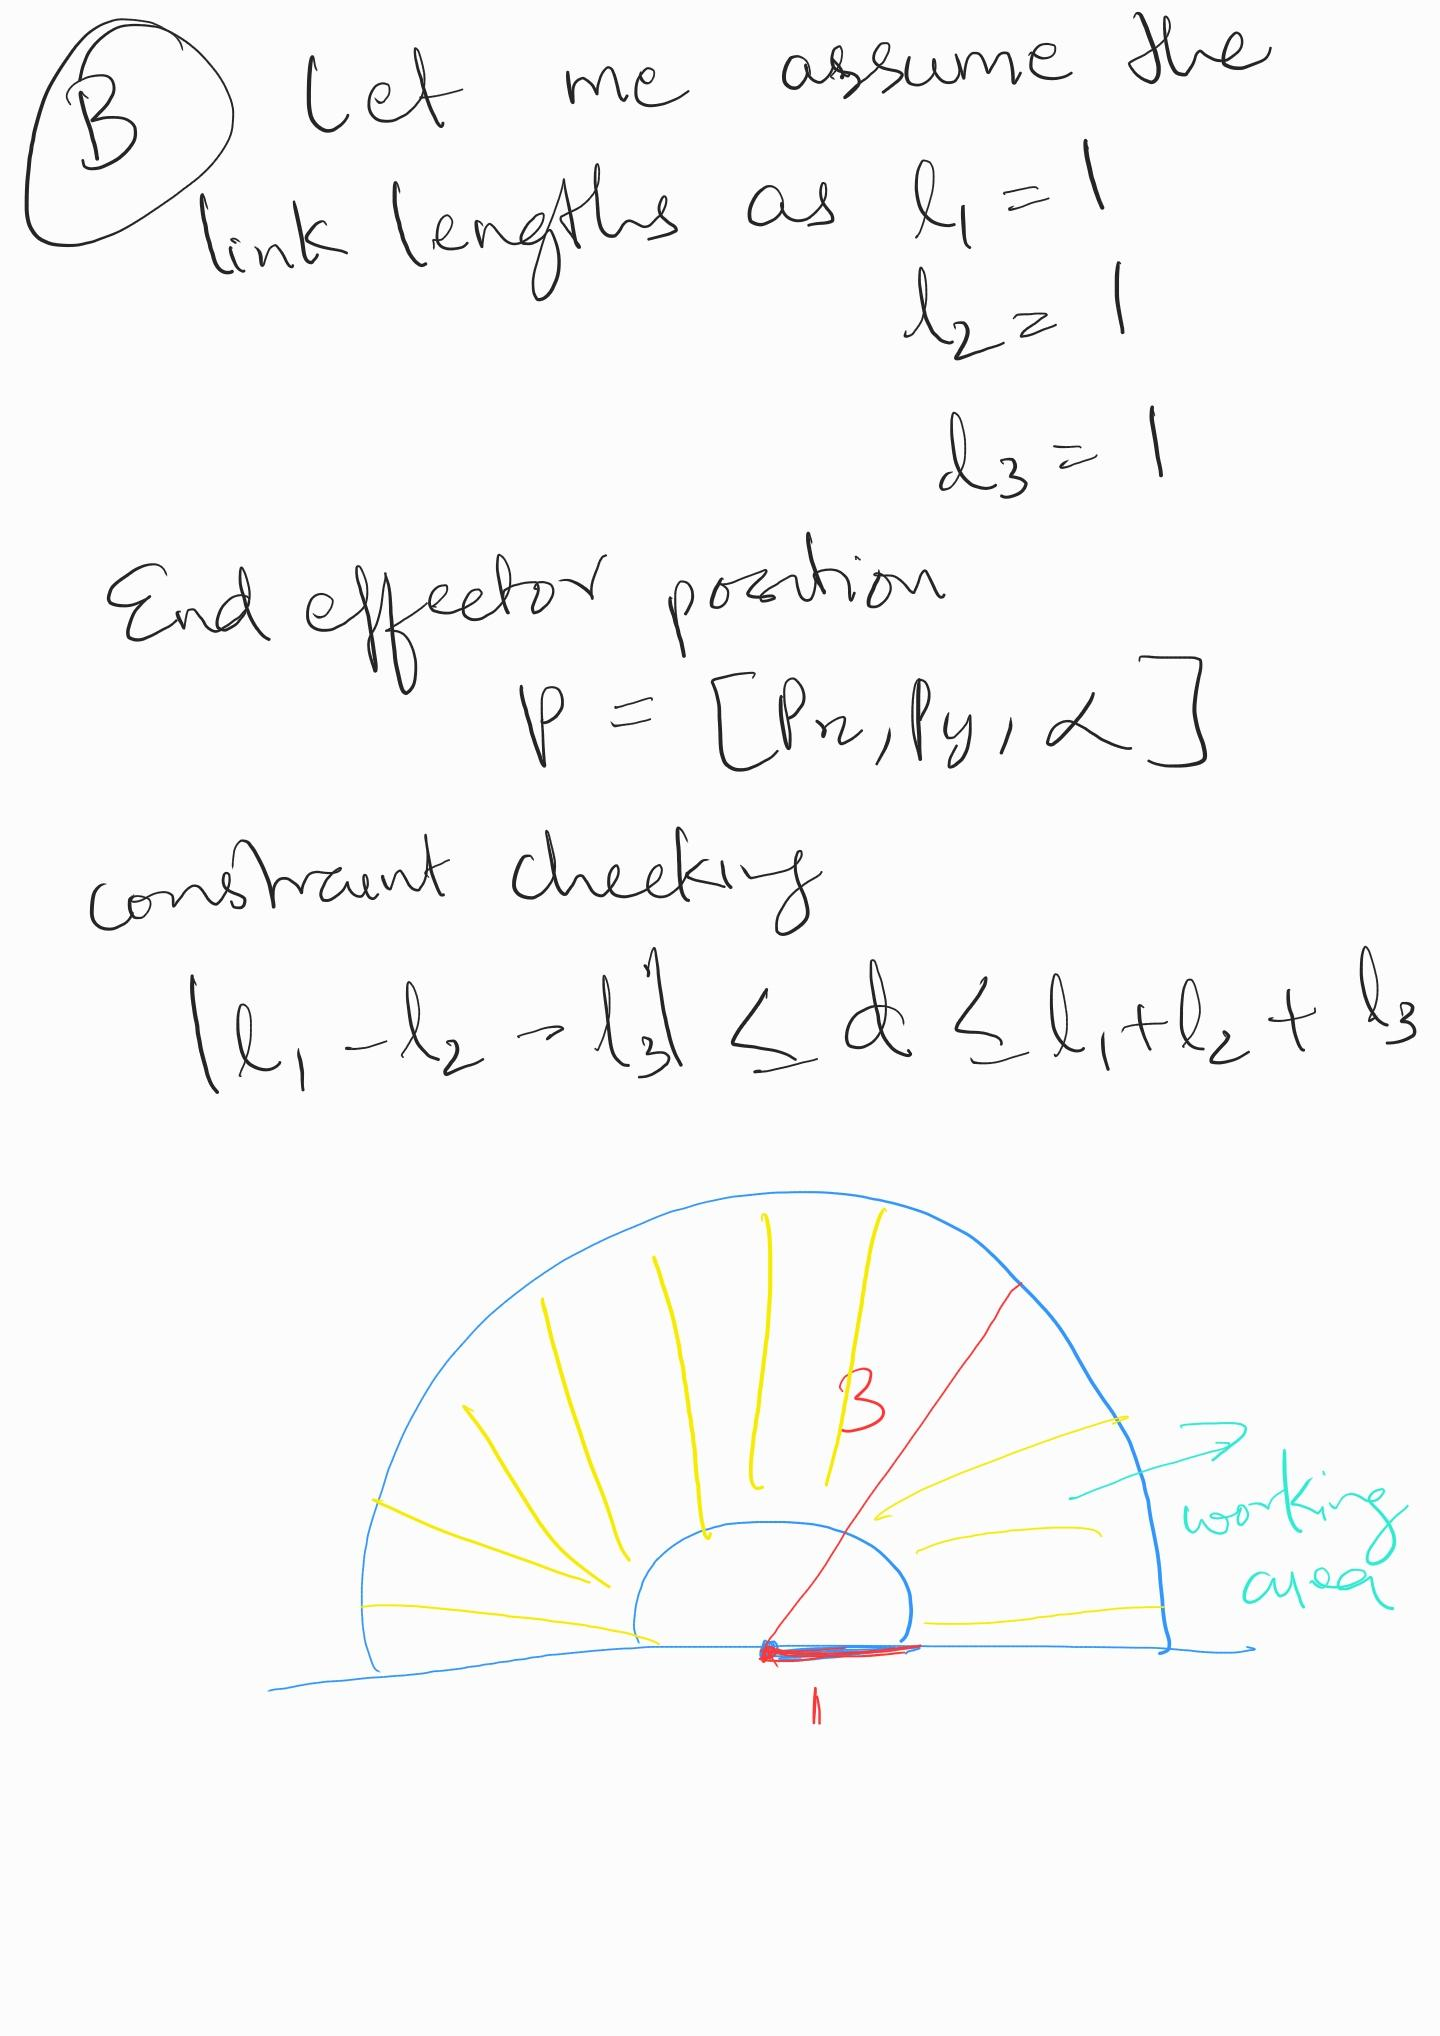 B Let me assume the
link lengths as l₁ = 1
l₂ = 1
l₃ = 1
End effector position
P = [Px, Py, α]
constraint checking
|l₁ - l₂ - l₃| ≤ d ≤ l₁ + l₂ + l₃
3
working
area
1